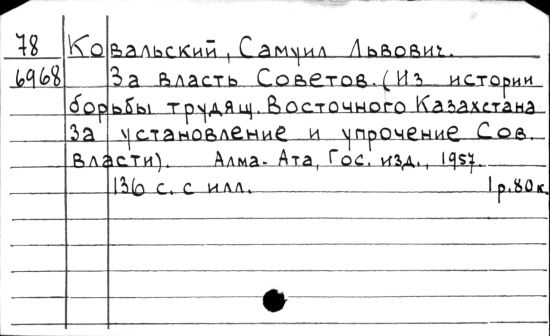 78 Ковальский, Самуил Львович.
6968 За власть Советов. (Из истории
борьбы трудящ. Восточного Казахстана
за установление и упрочение Сов.
власти). Алма-Ата, Гос. изд., 1957.
136 с. с илл. 1 р. 80 к.